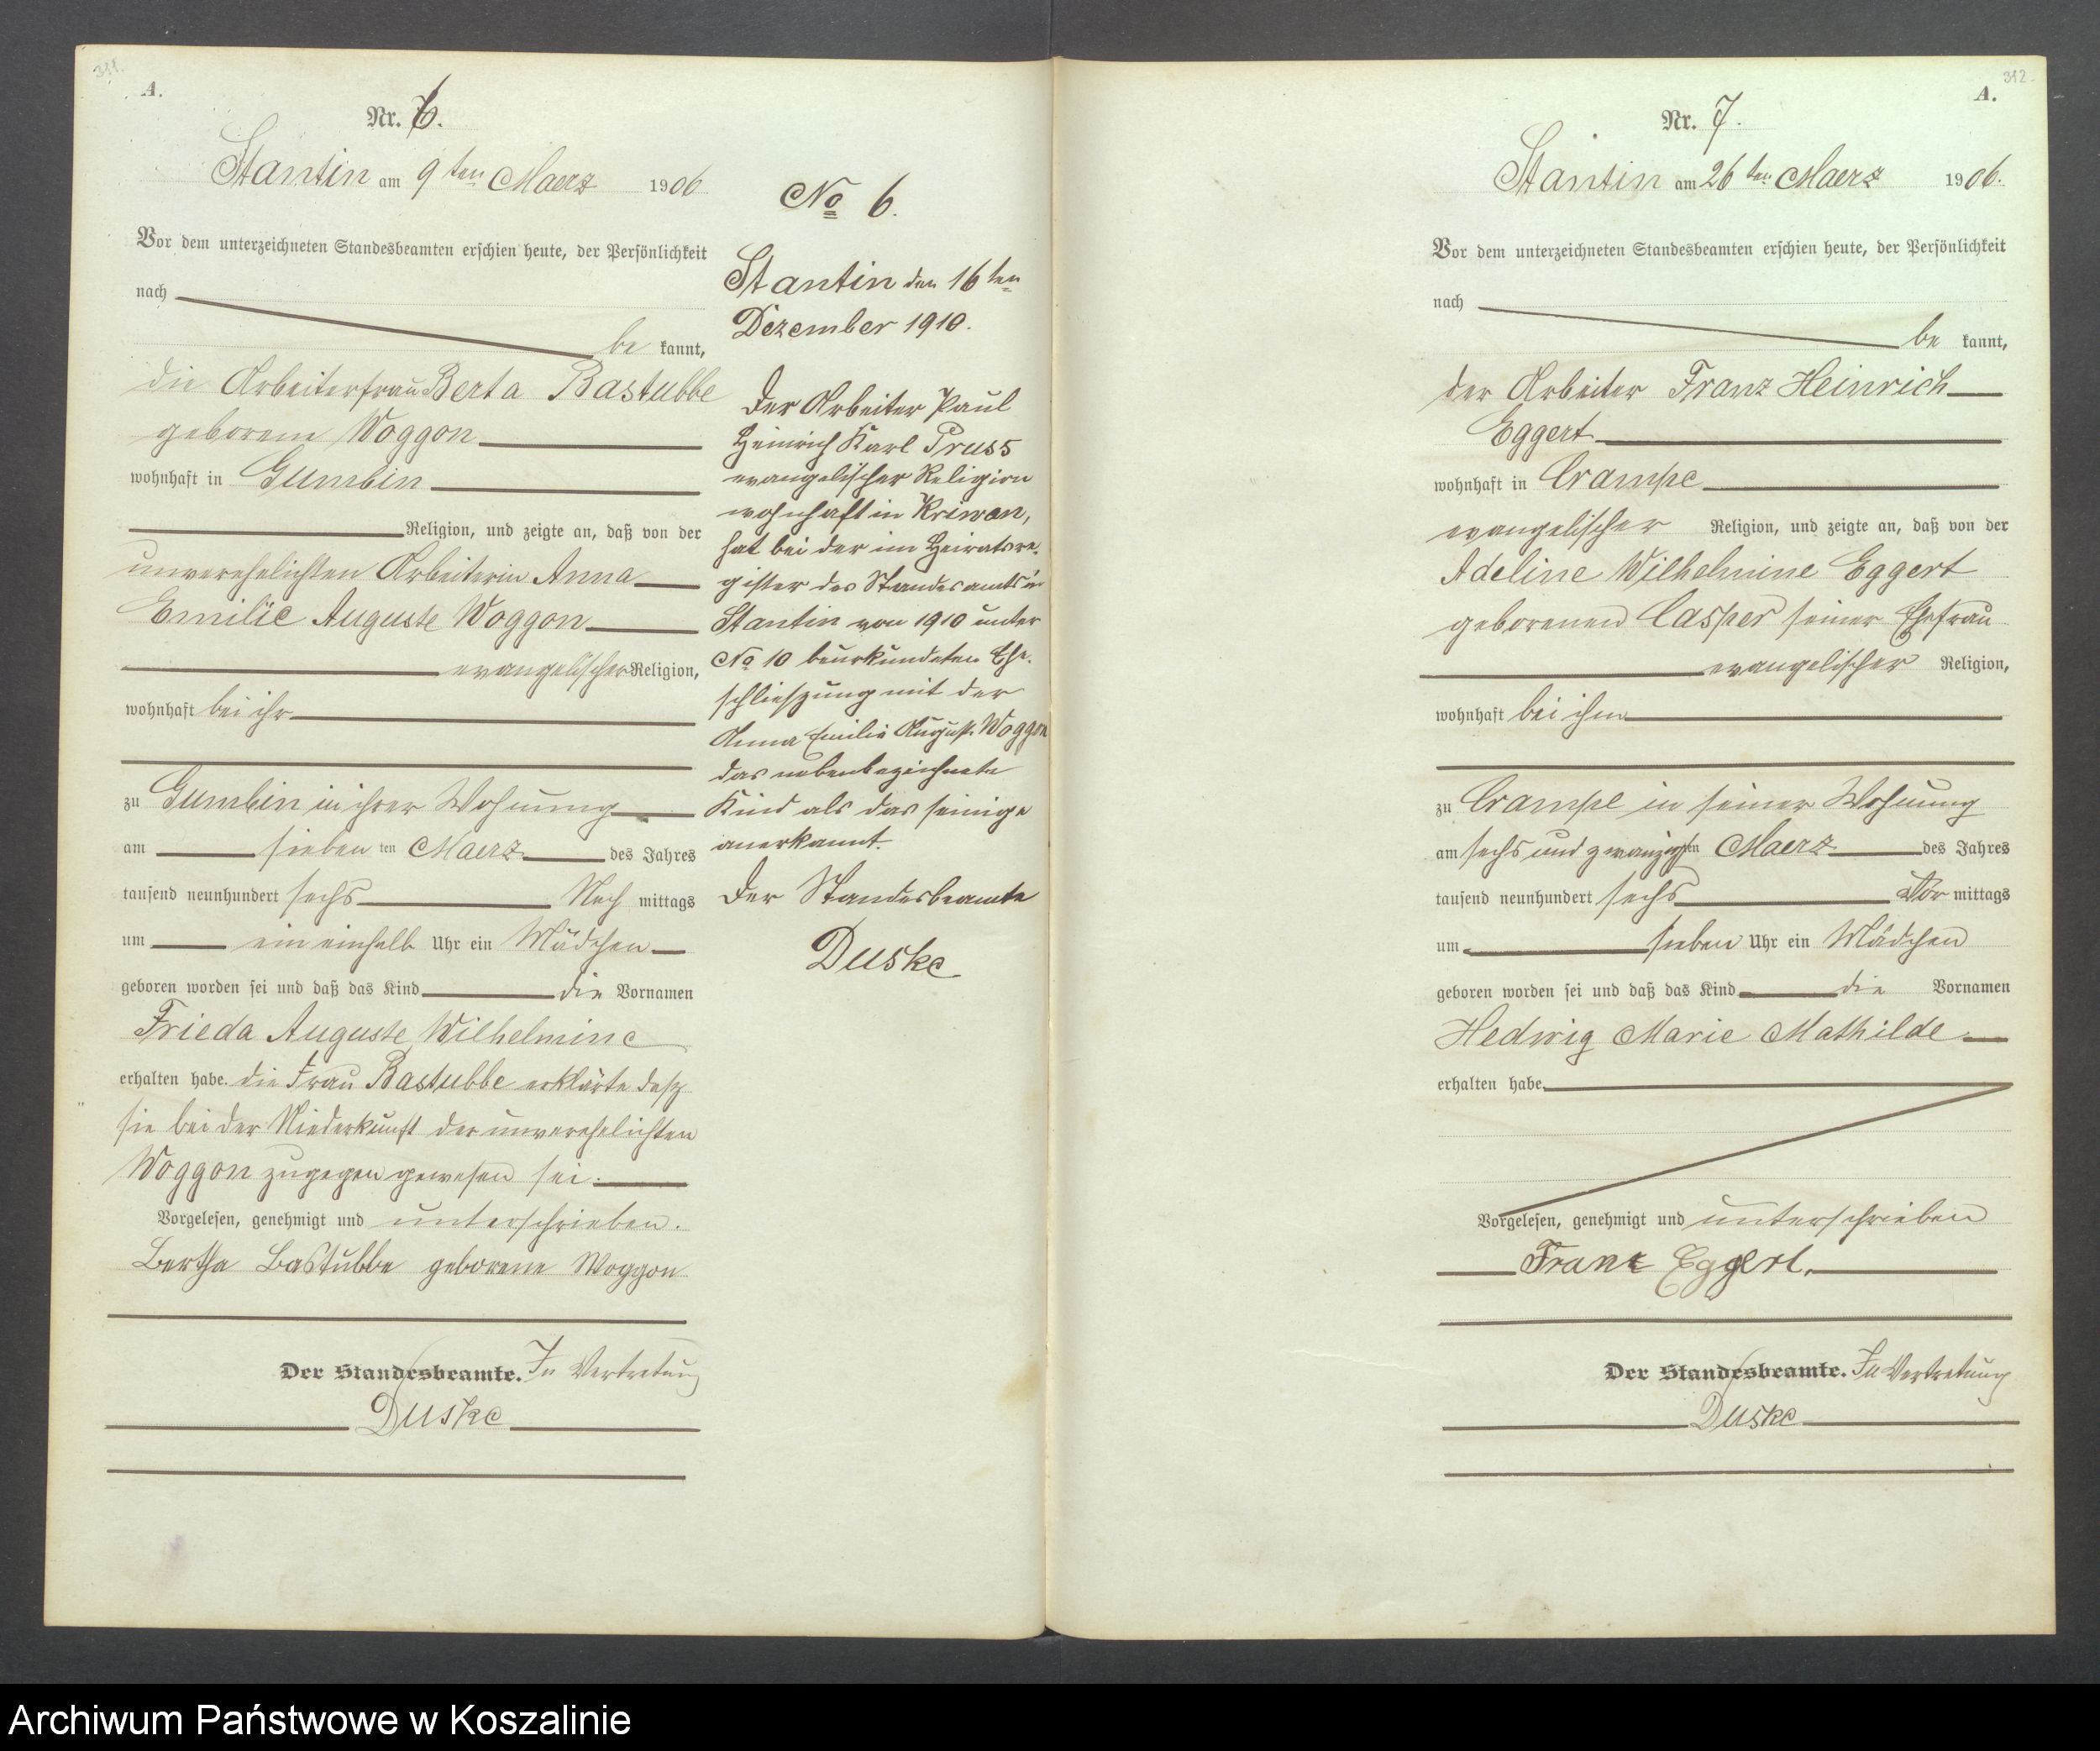 311.
A.
Nr. 6.
Stantin am 9ten Maerz 1906
Vor dem unterzeichneten Standesbeamten erschien heute, der Persönlichkeit
nach
be kannt,
die Arbeiterfrau Berta Bastubbe
geborene Woggon
wohnhaft in Gumbin
Religion, und zeigte an, daß von der
unverehelichten Arbeiterin Anna
Emilie Auguste Woggon
evangelischer Religion,
wohnhaft bei ihr
zu Gumbin in ihrer Wohnung
am sieben ten Maerz des Jahres
tausend neunhundert sechs Nach mittags
um ein einhalb Uhr ein Mädchen
geboren worden sei und daß das Kind die Vornamen
Frieda Auguste Wilhelmine
erhalten habe. die Frau Bastubbe erklärte dasz
sie bei der Niederkunft der unverehelichten
Woggon zugegen gewesen sei.
Vorgelesen, genehmigt und unterschrieben.
Bertha Bastubbe geborene Woggon
Der Standesbeamte. In Vertretung
Duske
No 6.
Stantin den 16ten
Dezember 1910.
Der Arbeiter Paul
Heinrich Karl Pruss
evangelischer Religion
wohnhaft in Kriwan,
hat bei der im Heiratsre-
gister des Standesamts in
Stantin von 1910 unter
No 10 beurkundeten Ehe-
schlieszung mit der
Anna Emilie August. Woggon
das nebenbezeichnete
Kind als das seinige
anerkannt.
Der Standesbeamte
Duske
312.
A.
Nr. 7.
Stantin am 26ten Maerz 1906.
Vor dem unterzeichneten Standesbeamten erschien heute, der Persönlichkeit
nach
be kannt,
der Arbeiter Franz Heinrich
Eggert
wohnhaft in Crampe
evangelischer Religion, und zeigte an, daß von der
Adeline Wilhelmine Eggert
geborenen Casper seiner Ehefrau
evangelischer Religion,
wohnhaft bei ihm
zu Crampe in seiner Wohnung
am sechs und zwanzigsten Maerz des Jahres
tausend neunhundert sechs Vor mittags
um sieben Uhr ein Mädchen
geboren worden sei und daß das Kind die Vornamen
Hedwig Marie Mathilde
erhalten habe.
Vorgelesen, genehmigt und unterschrieben
Franz Eggert.
Der Standesbeamte. In Vertretung
Duske
Archiwum Państwowe w Koszalinie